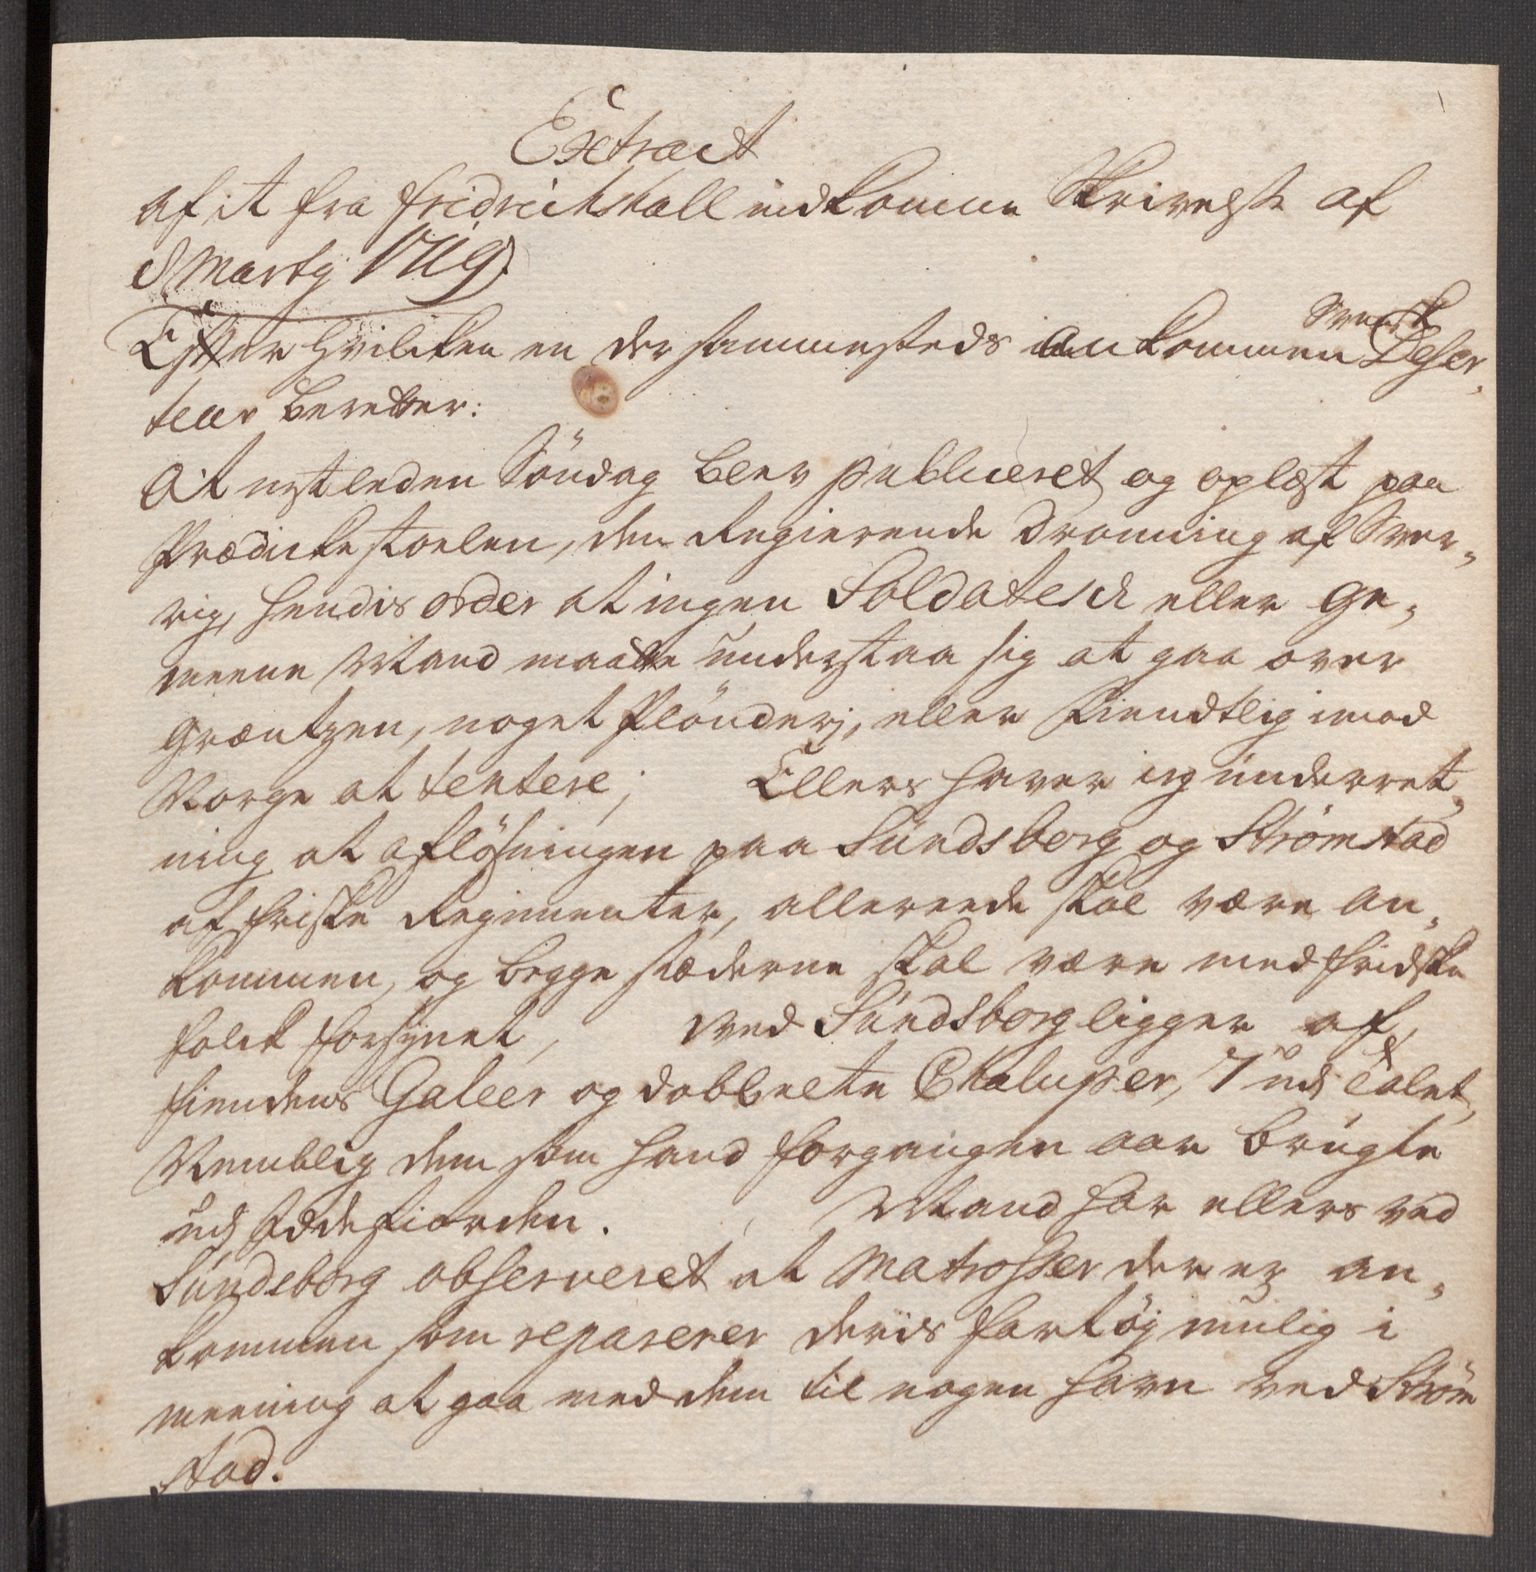 Extract
af it fra Fridrichshall indkomne Skrivelse af
8 Marty 1719.
Efter hvilcken en der sammesteds ankommen Svensk Deser„
teur beretter:
At nestleden Söndag blev publiceret og oplæst paa
Prædickestoelen, den Regierende Dronning af Sver„
rig, hendis order at ingen Soldatesch eller ge„
meene Mand maatte understaa sig at gaa over
Græntzen, noget Plönderj, eller Fiendtlig imod
Norge at tentere; Ellers haver ieg underret„
ning at aflösningen paa Sundsborg og Strømstad
af friske Regimenter, allereede skal være an„
kommen, og begge stæderne skal være med fridske
folck forsynet, Ved Sundsborg ligger af
fiendens Galeer og dobbelte Chaluper, 7 udj Talet,
Nemblig dem som hand forgangen aar brugte
udj Iddefiorden. Mand har ellers ved
Sundsborg observeret at Matrosser der er an„
kommen som reparerer deris fartöj muelig i
meening at gaa med dem til nogen havn ved Ström
stad.